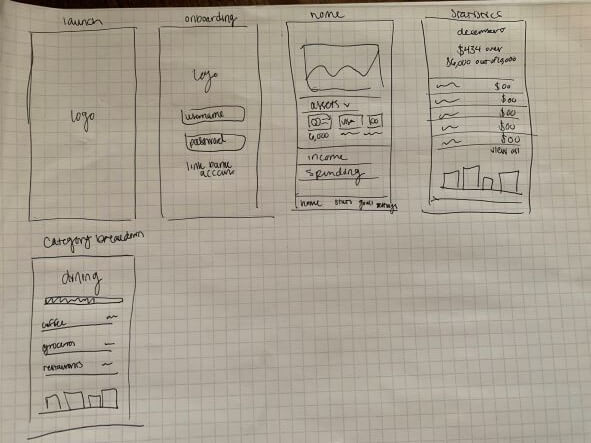 launch
logo
onboarding
logo
username
password
link bank
account
home
assets
6,000
income
spending
home stats goals settings
statistics
december
$434 over
$6,000 out of
$00
$00
$00
$00
$00
view all
category breakdown
dining
coffee
groceries
restaurants